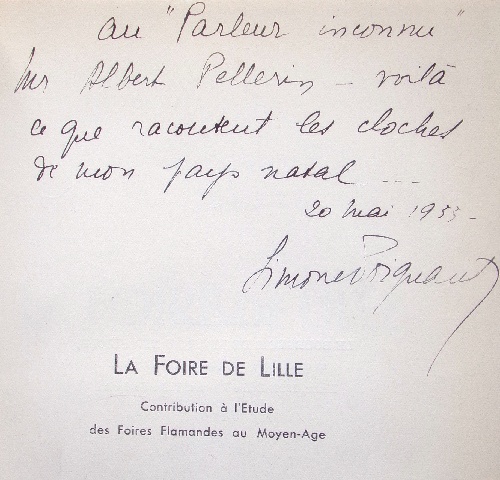 au "Parleur inconnu"
Mr Albert Pellerin – voilà
ce que racontent les cloches
de mon pays natal ...
20 Mai 1953 -
Simone Poignant
LA FOIRE DE LILLE
Contribution à l'Etude
des Foires Flamandes au Moyen-Age